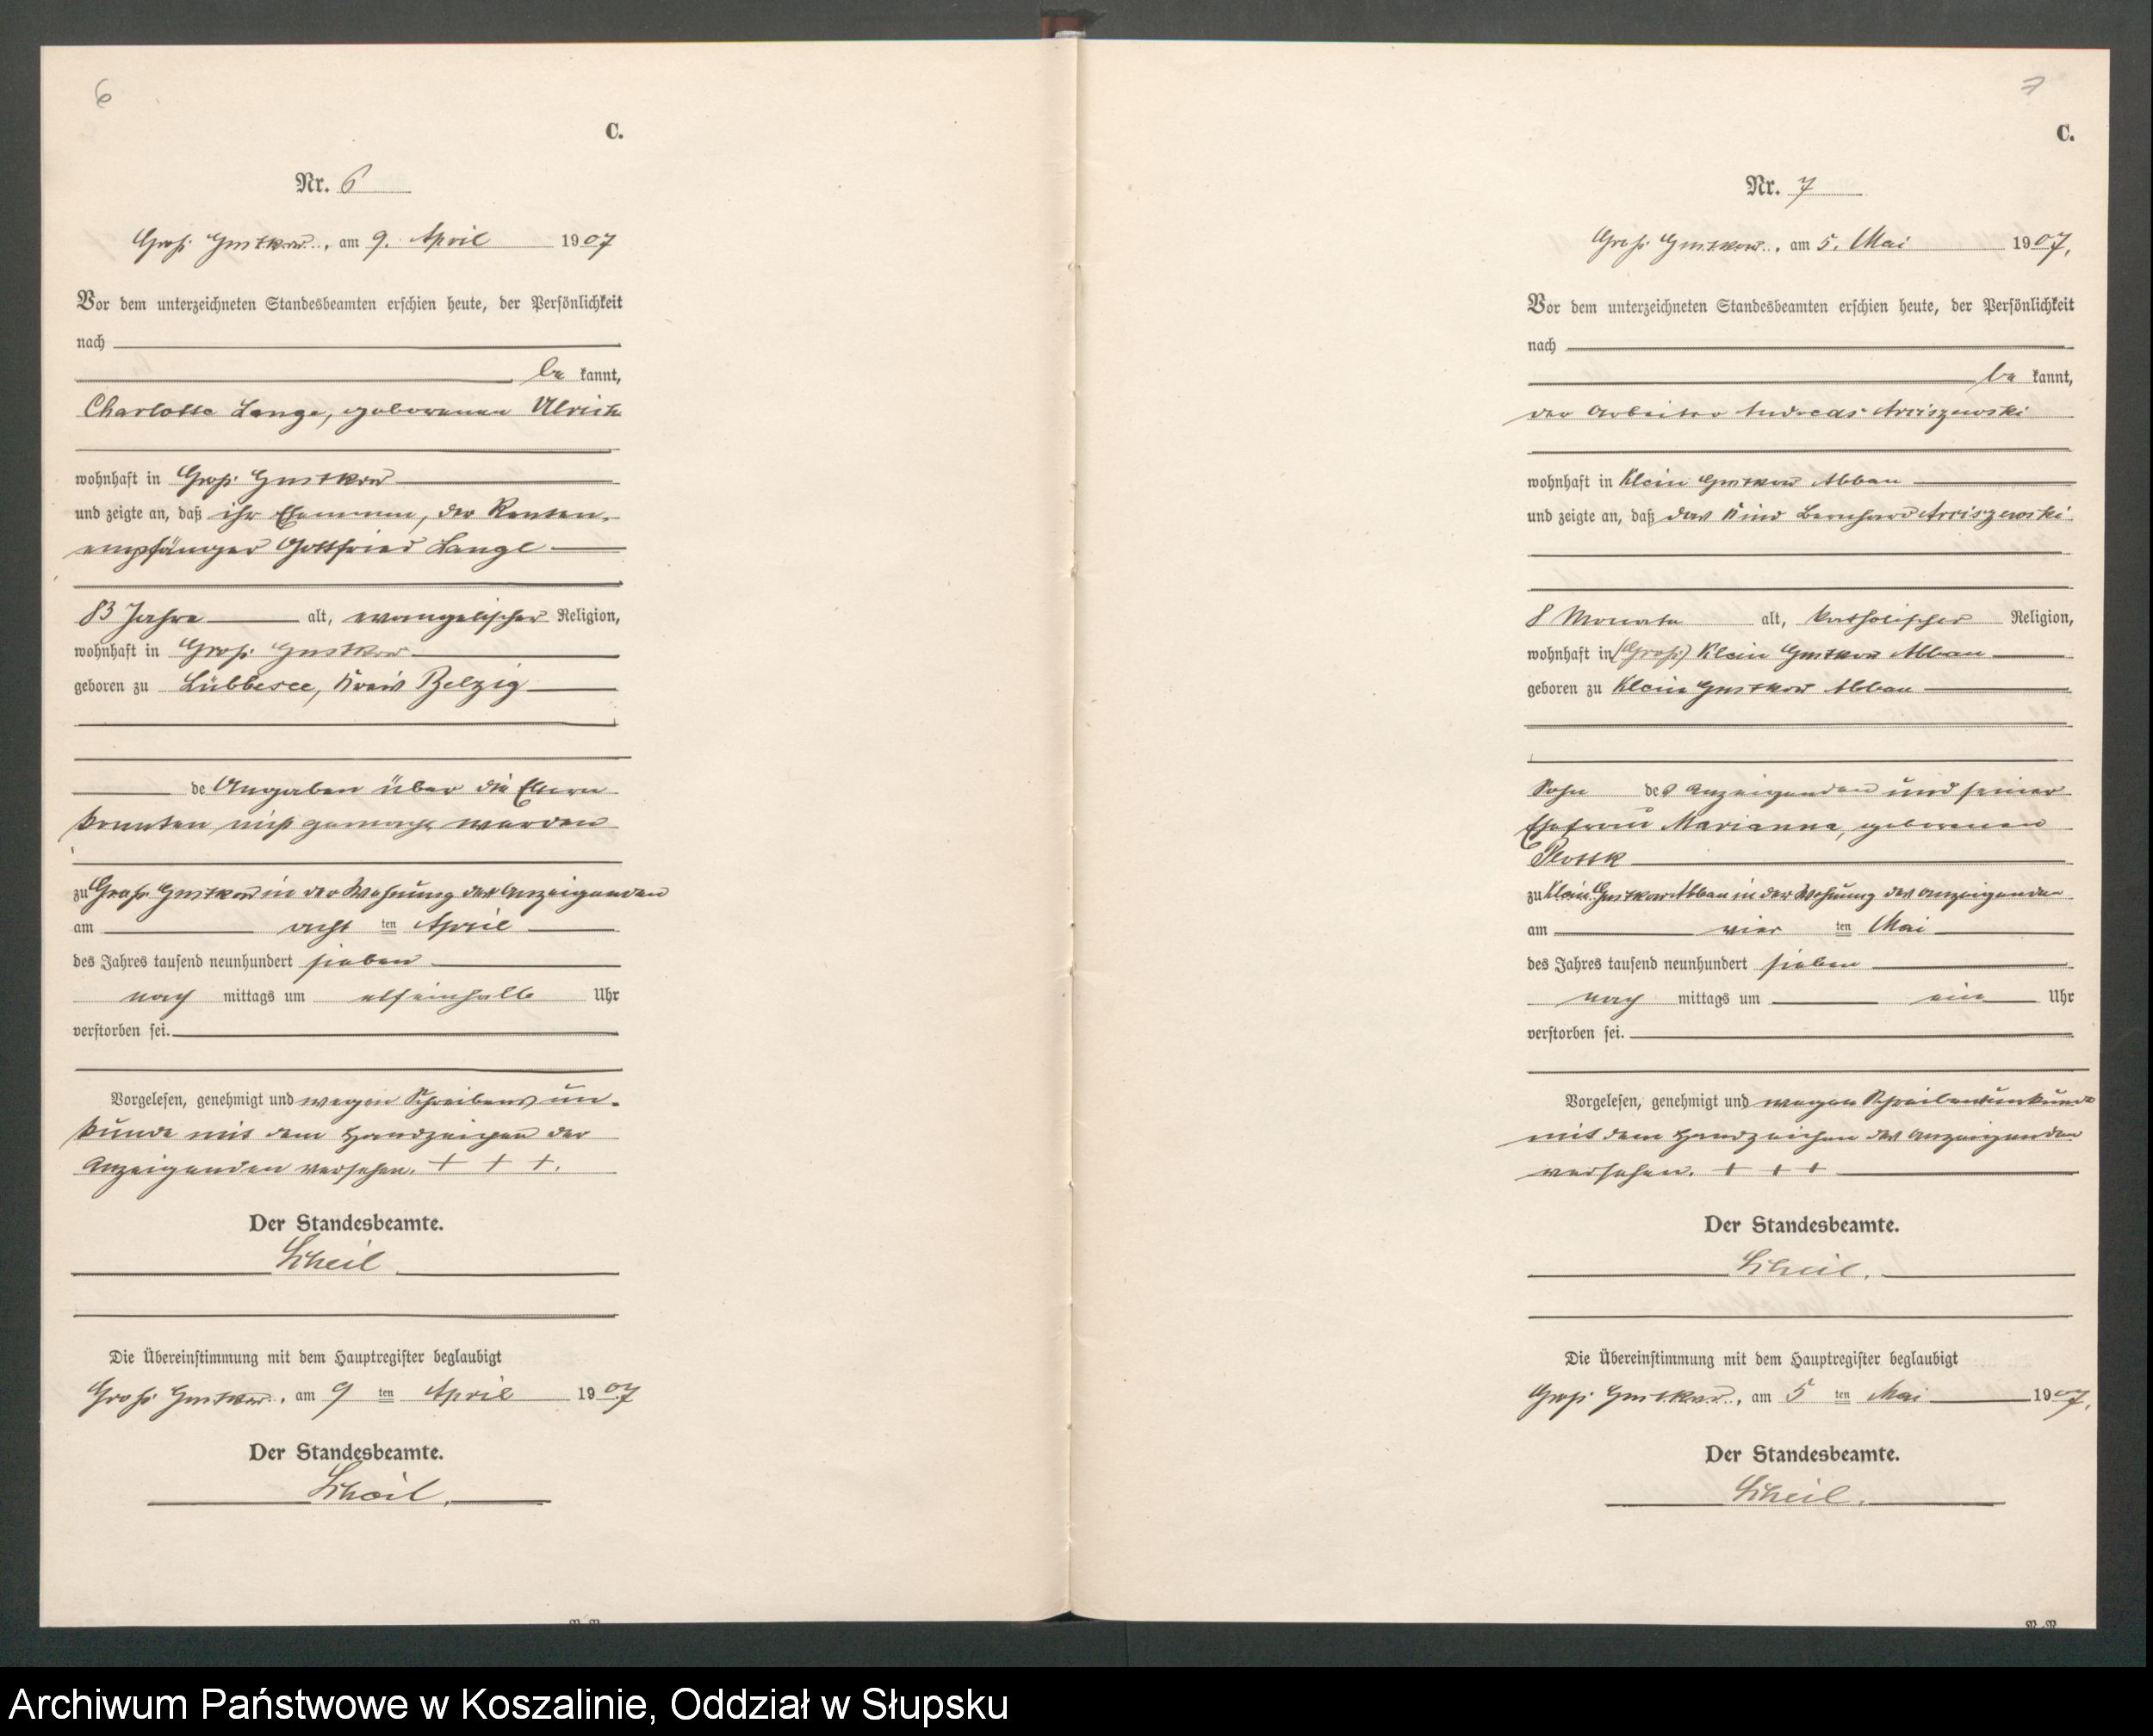 6
C.
Nr. 6
Groß Gustkow, am 9. April 1907
Vor dem unterzeichneten Standesbeamten erschien heute, der Persönlichkeit
nach
be kannt,
Charlotte Lange, geborenen Ulrich
wohnhaft in Groß Gustkow
und zeigte an, daß ihr Ehemann, der Renten-
empfänger Gottfried Lange
83 Jahre alt, evangelischer Religion,
wohnhaft in Groß Gustkow
geboren zu Lübbesee, Kreis Belzig
de Angaben über die Eltern
konnten nicht gemacht werden
zu Groß Gustkow in der Wohnung der Anzeigenden
am acht ten April
des Jahres tausend neunhundert sieben
nach mittags um elfeinhalb Uhr
verstorben sei.
Vorgelesen, genehmigt und wegen Schreibens un-
kunde mit dem Handzeichen der
Anzeigenden versehen. + + +.
Der Standesbeamte.
Scheil
Die Übereinstimmung mit dem Hauptregister beglaubigt
Groß Gustkow, am 9 ten April 1907
Der Standesbeamte.
Scheil.
7
C.
Nr. 7
Groß Gustkow, am 5. Mai 1907,
Vor dem unterzeichneten Standesbeamten erschien heute, der Persönlichkeit
nach
be kannt,
der Arbeiter Andreas Arciszewski
wohnhaft in Klein Gustkow Abbau
und zeigte an, daß das Kind Bernhard Arciszewski
8 Monate alt, katholischer Religion,
wohnhaft in (Groß) Klein Gustkow Abbau
geboren zu Klein Gustkow Abbau
Sohn des Anzeigenden und seiner
Ehefrau Marianna, geborenen
Plottk
zu Klein Gustkow Abbau in der Wohnung des Anzeigenden
am vier ten Mai
des Jahres tausend neunhundert sieben
nach mittags um ein Uhr
verstorben sei.
Vorgelesen, genehmigt und wegen Schreibensunkunde
mit dem Handzeichen des Anzeigenden
versehen. + + +
Der Standesbeamte.
Scheil.
Die Übereinstimmung mit dem Hauptregister beglaubigt
Groß Gustkow, am 5 ten Mai 1907,
Der Standesbeamte.
Scheil.
Archiwum Państwowe w Koszalinie, Oddział w Słupsku